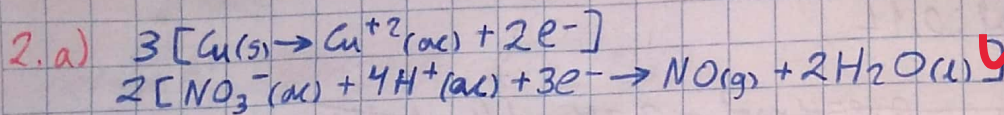 2. a) 3 [Cu(s) → Cu⁺²(ac) + 2e⁻]
2 [NO₃⁻(ac) + 4H⁺(ac) + 3e⁻ → NO(g) + 2H₂O(l)]